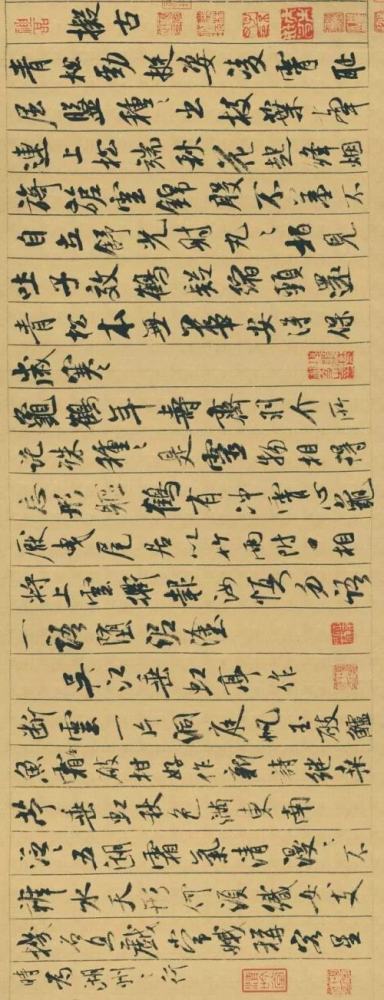 擬古
青松勁挺姿凌霄恥
屈盤種〻出枝葉牽
連上松端秋花起絳烟
旖旎雲錦殷不羞不
自立舒光射丸〻栢見
吐子效鶴疑縮頸還
青松本無華安得保
歲寒
龜鶴年壽齊羽介所
託殊種〻是靈物相得
忘形軀鶴有冲霄心龜
厭曳尾居以竹兩附口相
將上雲衢報汝慎勿語
一語墮泥塗
吳江垂虹亭作
斷雲一片洞庭帆玉破鱸
魚霜破柑好作新詩繼桑
苧垂虹秋色滿東南
泛〻五湖霜氣清漫〻不
辨水天形何須織女支
機石且戲常娥稱客星
時為湖州之行